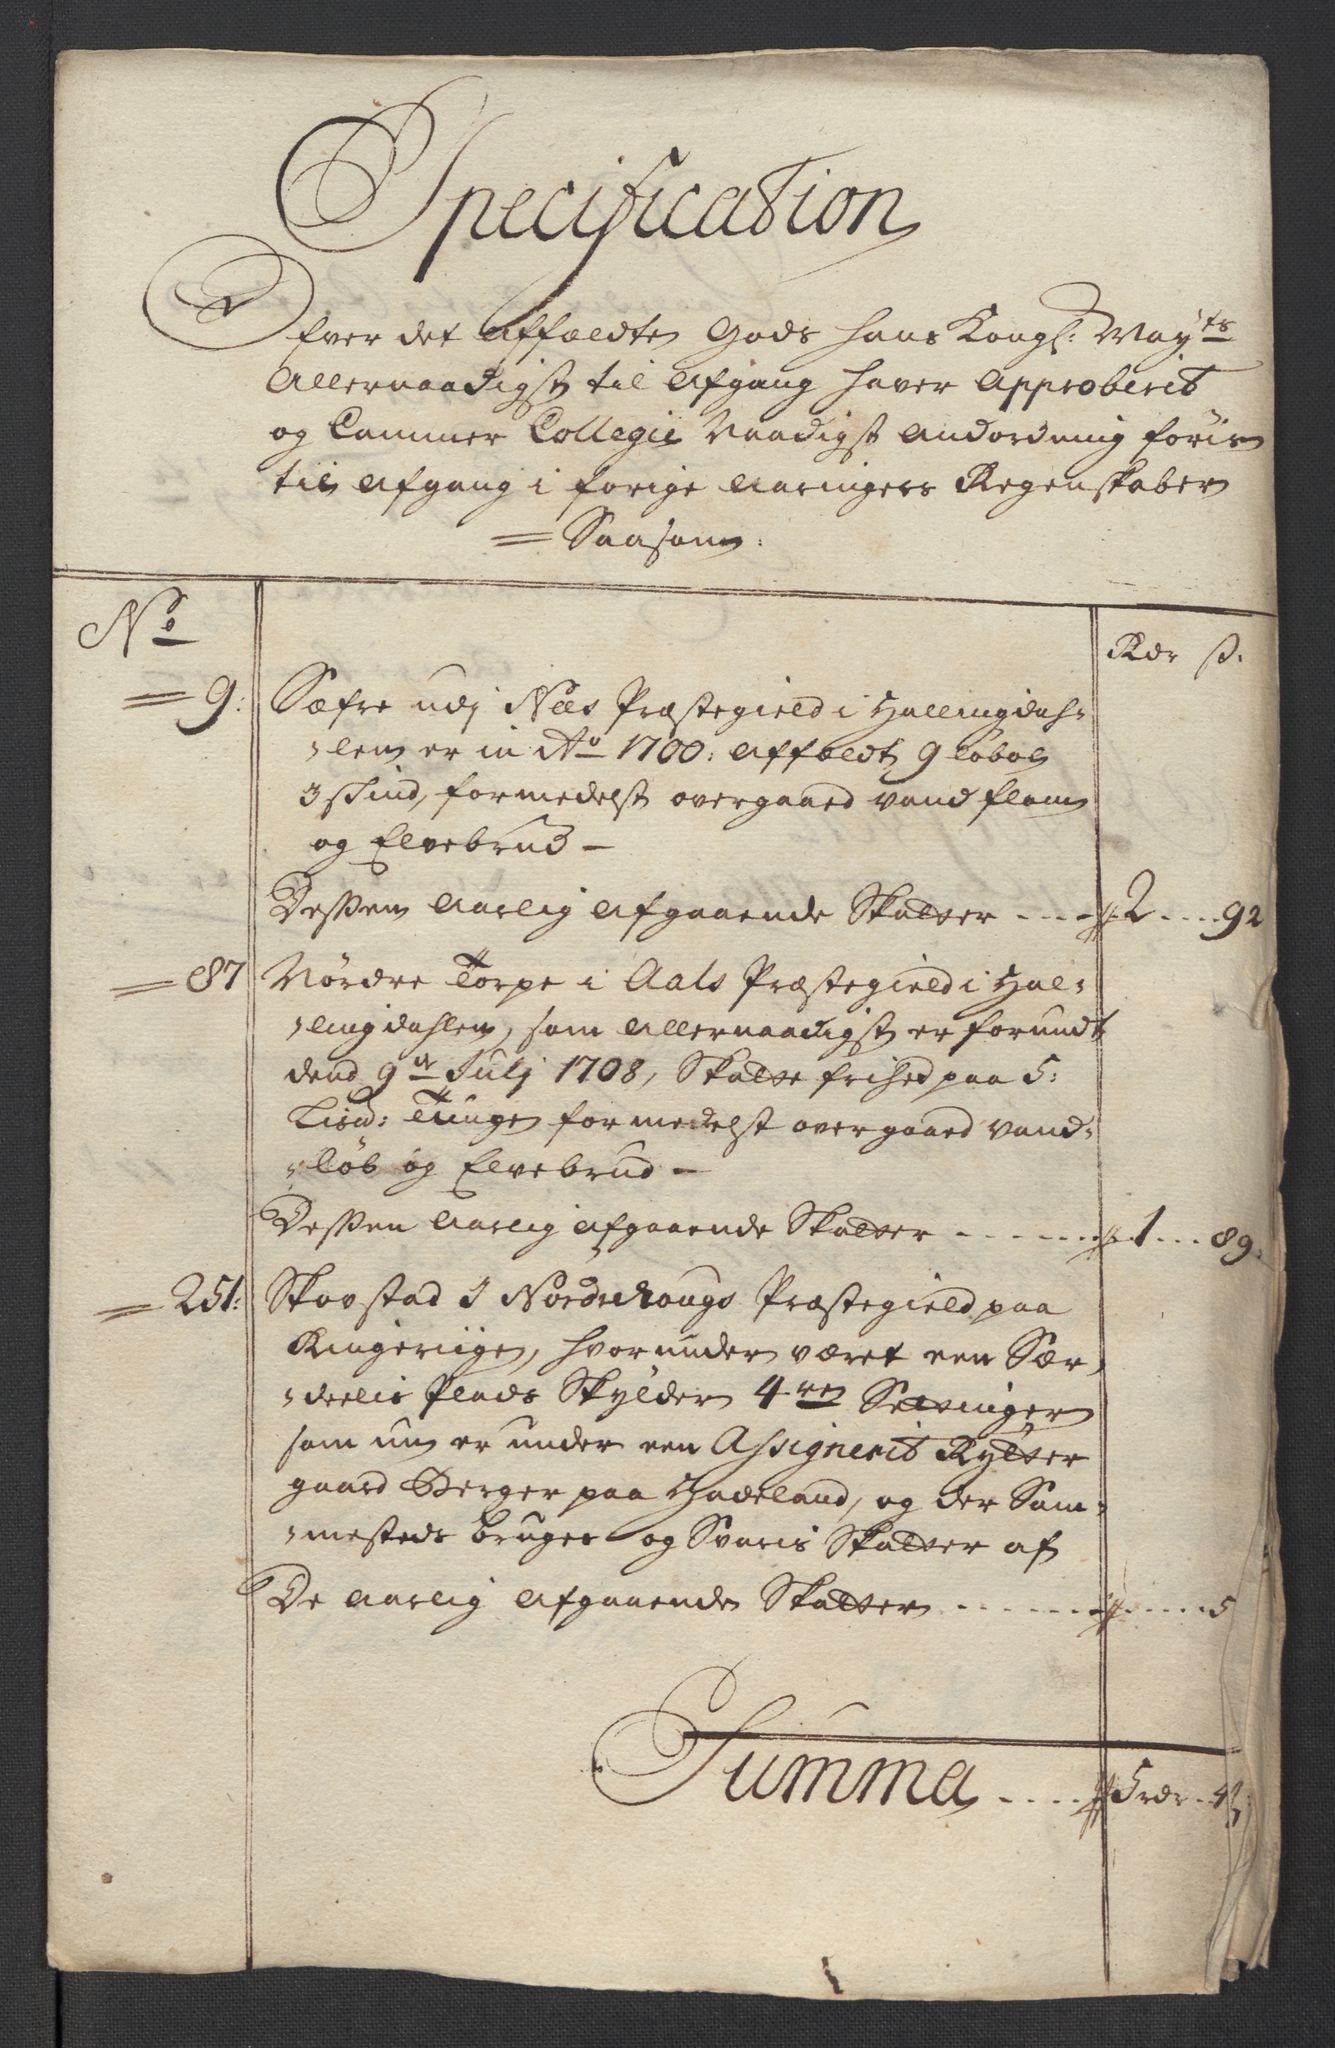 Specification
Ofver det affældte Gods hans Kongl: Mayts
Allernaadigst til afgang haver Approberit
og Cammer Collegii Naadigst andordning føris
til afgang i forige aaringers Regenskaber
= Saasom:
No Rdr ß.
= 9: Sæfre udj Næs Præstegield i Hallingdah-
-len er in Ao 1700: affældt 9 løbol
3 skind, formedelst overgaaed vand flom
og Elvebrud –
Dessen aarlig afgaaende Skatter - - - 2 - - - 92
= 87 Nørdre Torpe i Aals Præstegield i Hal-
-lingdahlen, som allernaadigst er forundt
dend 9de Julj 1708, Skatte frihed paa 5:
Lisd: Tunge formedelst overgaaed vand-
-løb og Elvebrud –
Dessen aarlig afgaaende Skatter - - - - - 1 - - - 89:
= 251: Skovstad J Nordrehougs Præstegield paa
Ringeriige, hvorunder været een Sær-
-deelis Plads Skylder 4re Settinger
som nu er under een Assignerit Rytter
gaard Berger paa Hadeland, og der Sam-
-mesteds bruges og Svaris Skatter af
De aarlig afgaaende Skatter - - - - - - - - - - 5
Summa - - - - 5 rdr -